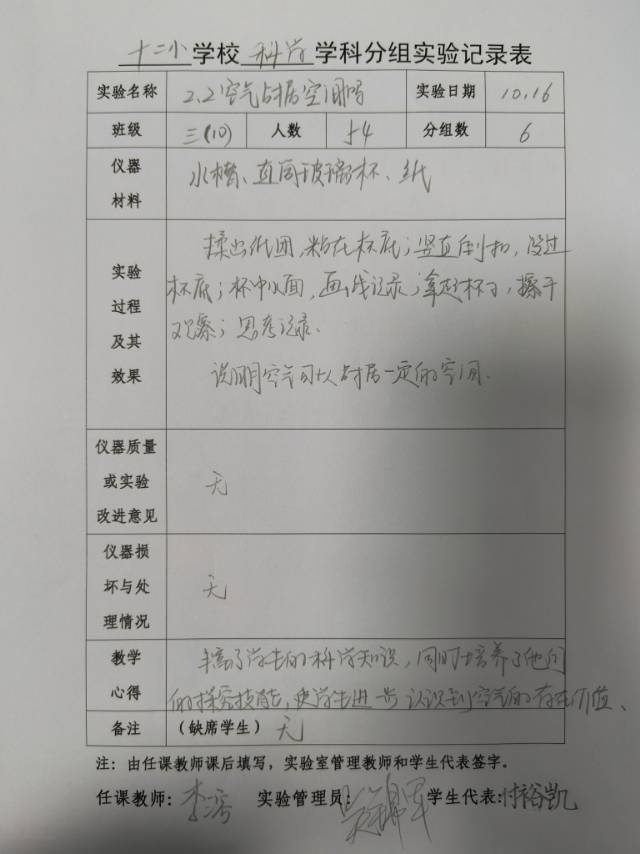 十二小学校 科学 学科分组实验记录表
实验名称 2.2空气占据空间吗 实验日期 10.16
班级 三(10) 人数 54 分组数 6
仪器
材料
水槽、直筒玻璃杯、纸
实验
过程
及其
效果
揉出纸团,粘在杯底;竖直倒扣,没过
杯底;杯中水面,画线记录;拿起杯子,擦干
观察;思考记录.
说明空气可以占据一定的空间.
仪器质量
或实验
改进意见
无
仪器损
坏与处
理情况
无
教学
心得
丰富了学生的科学知识,同时培养了他们
的探究技能,使学生进一步认识到空气的存在价值、
备注 (缺席学生) 无
注:由任课教师课后填写,实验室管理教师和学生代表签字。
任课教师: 李 实验管理员: 学生代表:付裕凯